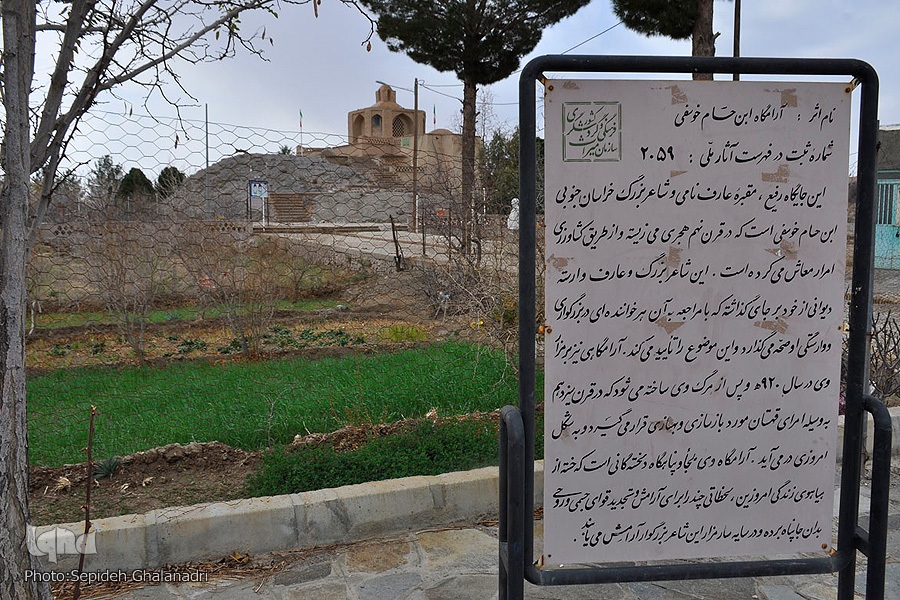 نام اثر : آرامگاه ابن حسام خوسفی
شماره ثبت در فهرست آثار ملّی : ۲۰۵۹
سازمان میراث فرهنگی و گردشگری
این جایگاه رفیع ، مقبرهٔ عارف نامی و شاعر بزرگ خراسان جنوبی
ابن حسام خوسفی است که در قرن نهم هجری می زیسته و از طریق کشاورزی
امرار معاش می کرده است . این شاعر بزرگ و عارف وارسته
دیوانی از خود بر جای گذاشته که با مراجعه به آن هر خواننده ای در بزرگواری
و وارستگی او صحه می گذارد و این موضوع را تأیید می کند . آرامگاهی نیز بر مزار
وی در سال ۹۲۰ ه و پس از مرگ وی ساخته می شود که در قرن سیزدهم
به وسیله امرای قهستان مورد بازسازی و بهسازی قرار می گیرد و به شکل
امروزی در می آید . آرامگاه وی ملجأ و پناهگاه دلخستگانی است که خسته از
هیاهوی زندگی امروزین ، لحظاتی چند را برای آرامش و تجدید قوای جسمی و روحی
بدان جا پناه برده و در سایه سار مزار این شاعر بزرگوار آرامش می یابند .
iqna
Photo:Sepideh Ghalanadri